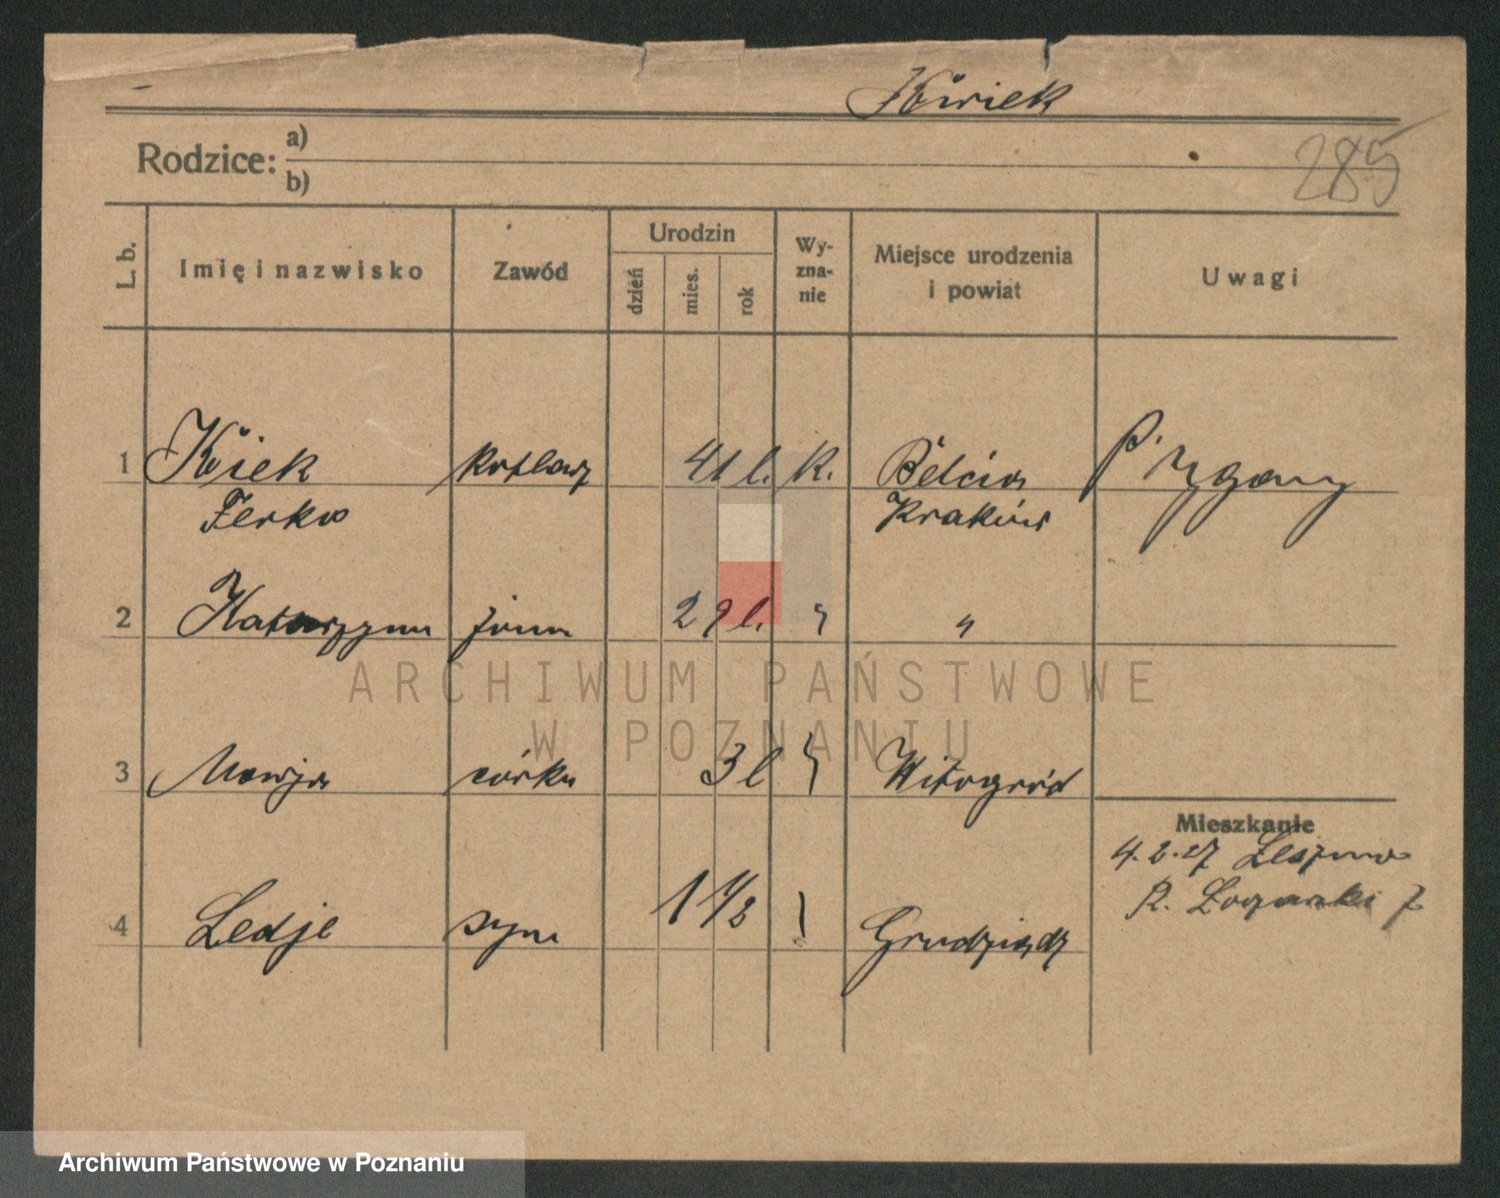 Kwiek
285
Rodzice: a)
b)
L. b.
Imię i nazwisko
Zawód
Urodzin
dzień
mies.
rok
Wy-
zna-
nie
Miejsce urodzenia
i powiat
Uwagi
1 Kwiek kotlarz 41 l. R.
Ferko Kraków
2 Katarzyna żona 29 l. " "
3 Marja córka 3 l " Witogród
Mieszkanie
4. 2. 27 Leszno
R.
4 Ledje syn 1 1/2 Grudziądz
ARCHIWUM PAŃSTWOWE
W POZNANIU
Archiwum Państwowe w Poznaniu